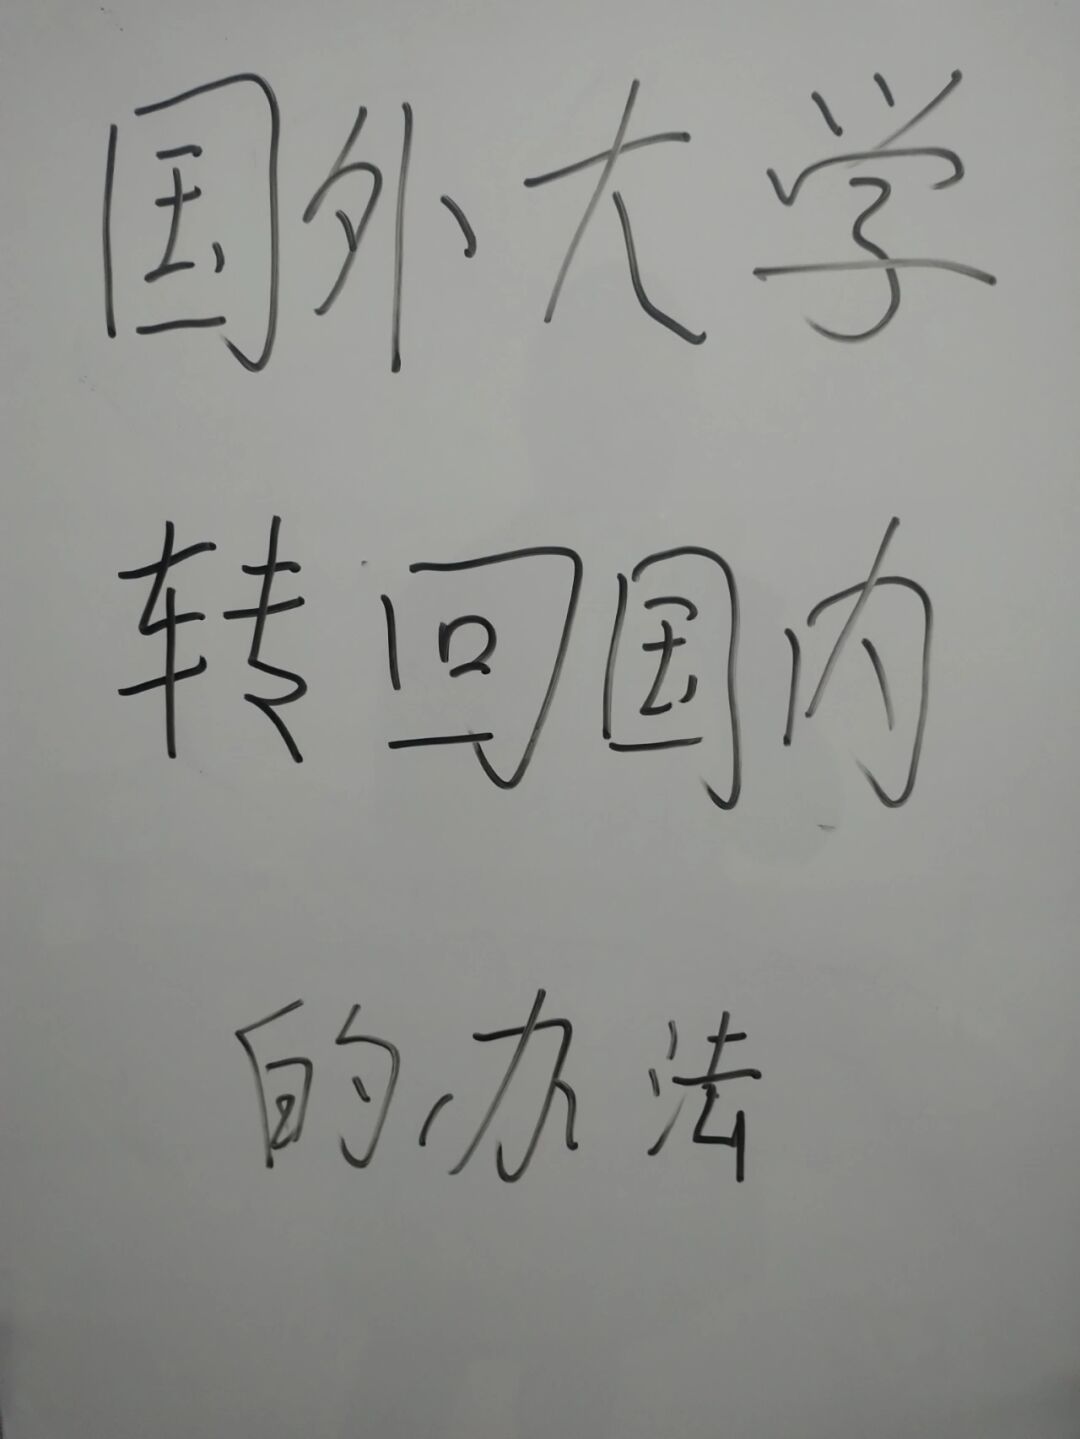 国外大学
转回国内
的办法